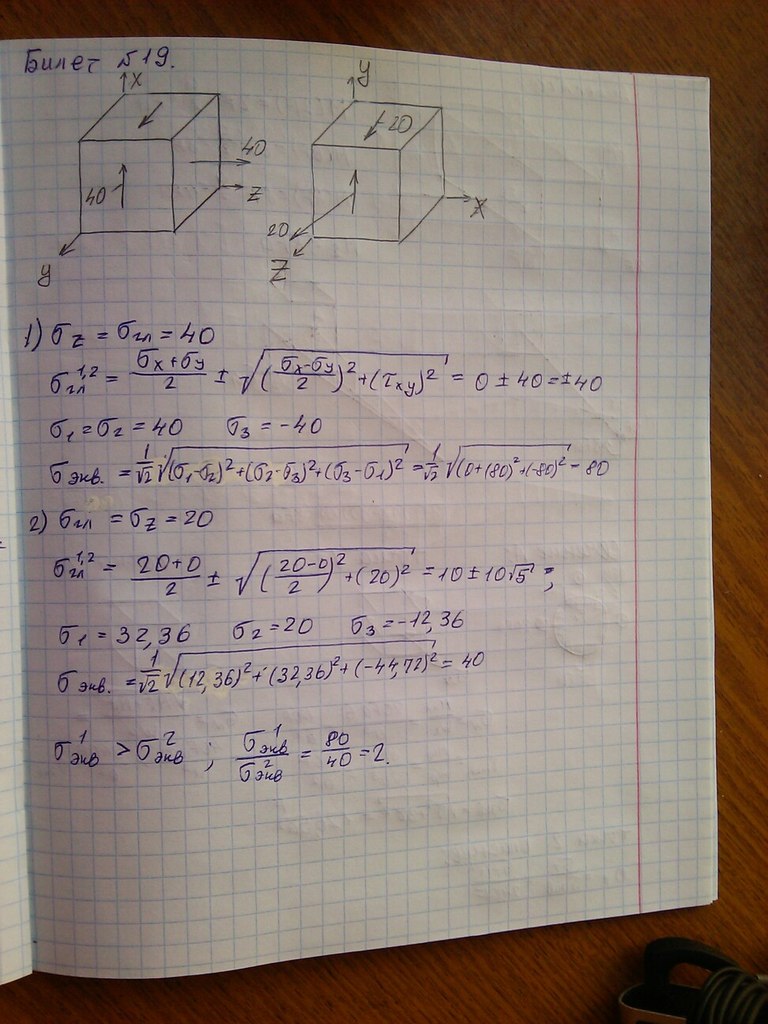 Билет №19.
x y
40 20
40 z x
20
y z
1) σz = σгл = 40
σгл^1,2 = (σx+σy)/2 ± √((σx-σy)/2)²+(τxy)² = 0 ± 40 = ±40
σ1 = σ2 = 40 σ3 = -40
σэкв. = 1/√2 √(σ1-σ2)²+(σ2-σ3)²+(σ3-σ1)² = 1/√2 √(0+(80)²+(-80)² = 80
2) σгл = σz = 20
σгл^1,2 = (20+0)/2 ± √((20-0)/2)²+(20)² = 10 ± 10√5 ;
σ1 = 32,36 σ2 = 20 σ3 = -12,36
σэкв. = 1/√2 √(12,36)²+(32,36)²+(-44,72)² = 40
σэкв^1 > σэкв^2 ; σэкв^1/σэкв^2 = 80/40 = 2.